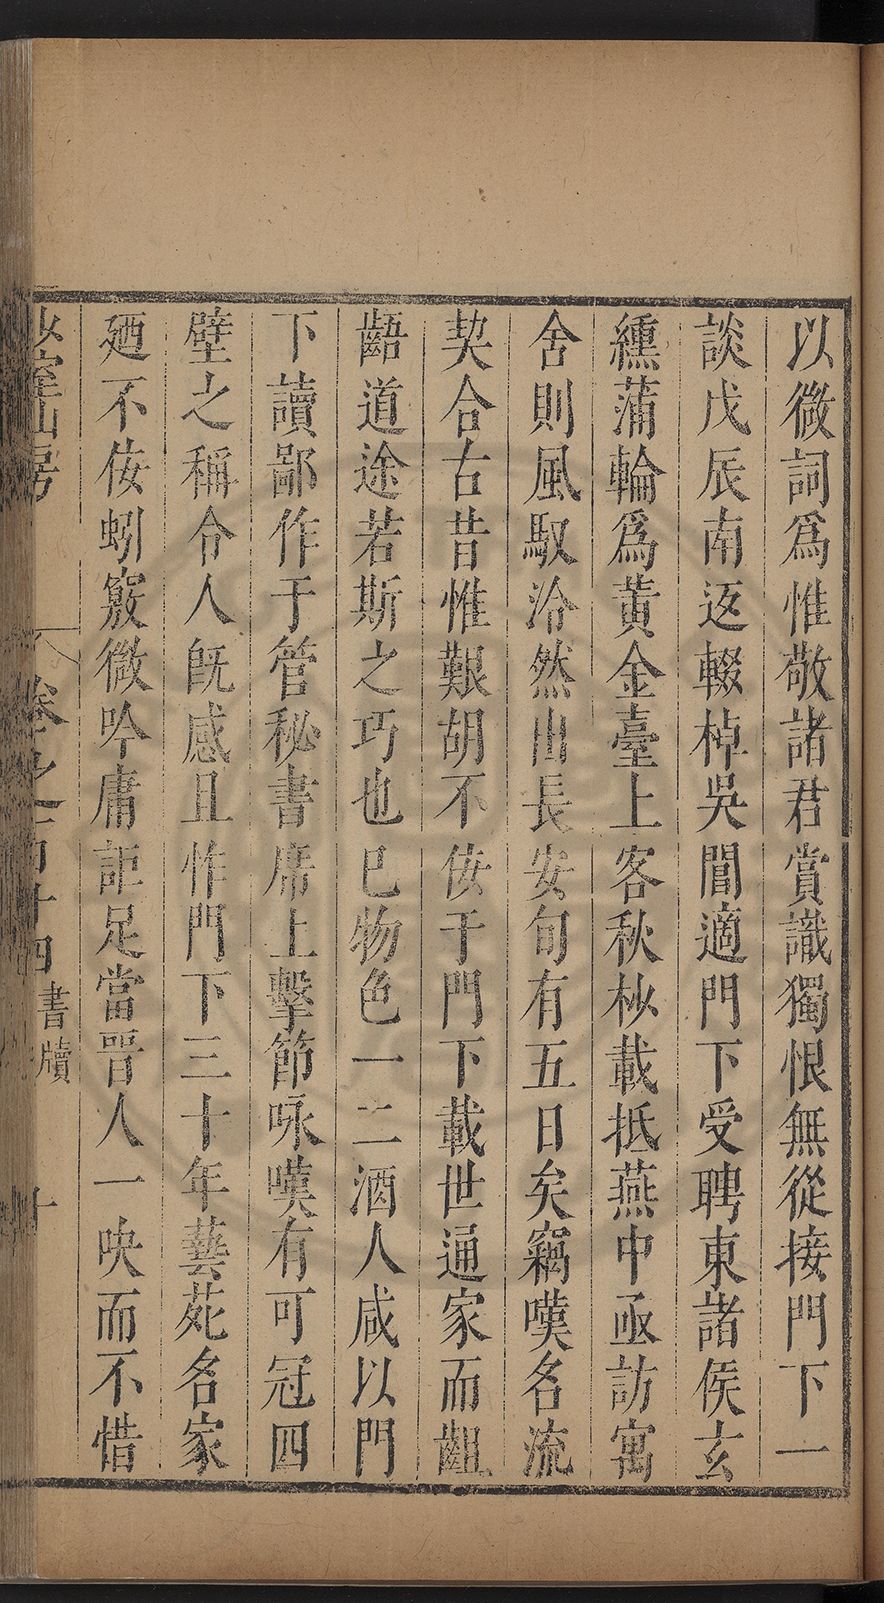 以微詞爲惟敬諸君賞識獨恨無從接門下一
談戊辰南返輟棹吳閶適門下受聘東諸侯玄
纁蒲輪爲黃金臺上客秋杪載抵燕中亟訪寓
舍則風馭泠然出長安旬有五日矣竊嘆名流
契合古昔惟艱胡不佞于門下載世通家而齟
齬道途若斯之巧也已物色一二酒人咸以門
下讀鄙作于管秘書席上擊節咏嘆有可冠四
壁之稱令人旣感且怍門下三十年藝苑名家
廼不佞蚓竅微吟庸詎足當晉人一吷而不惜
少室山房
卷之一百十四
書牘
十